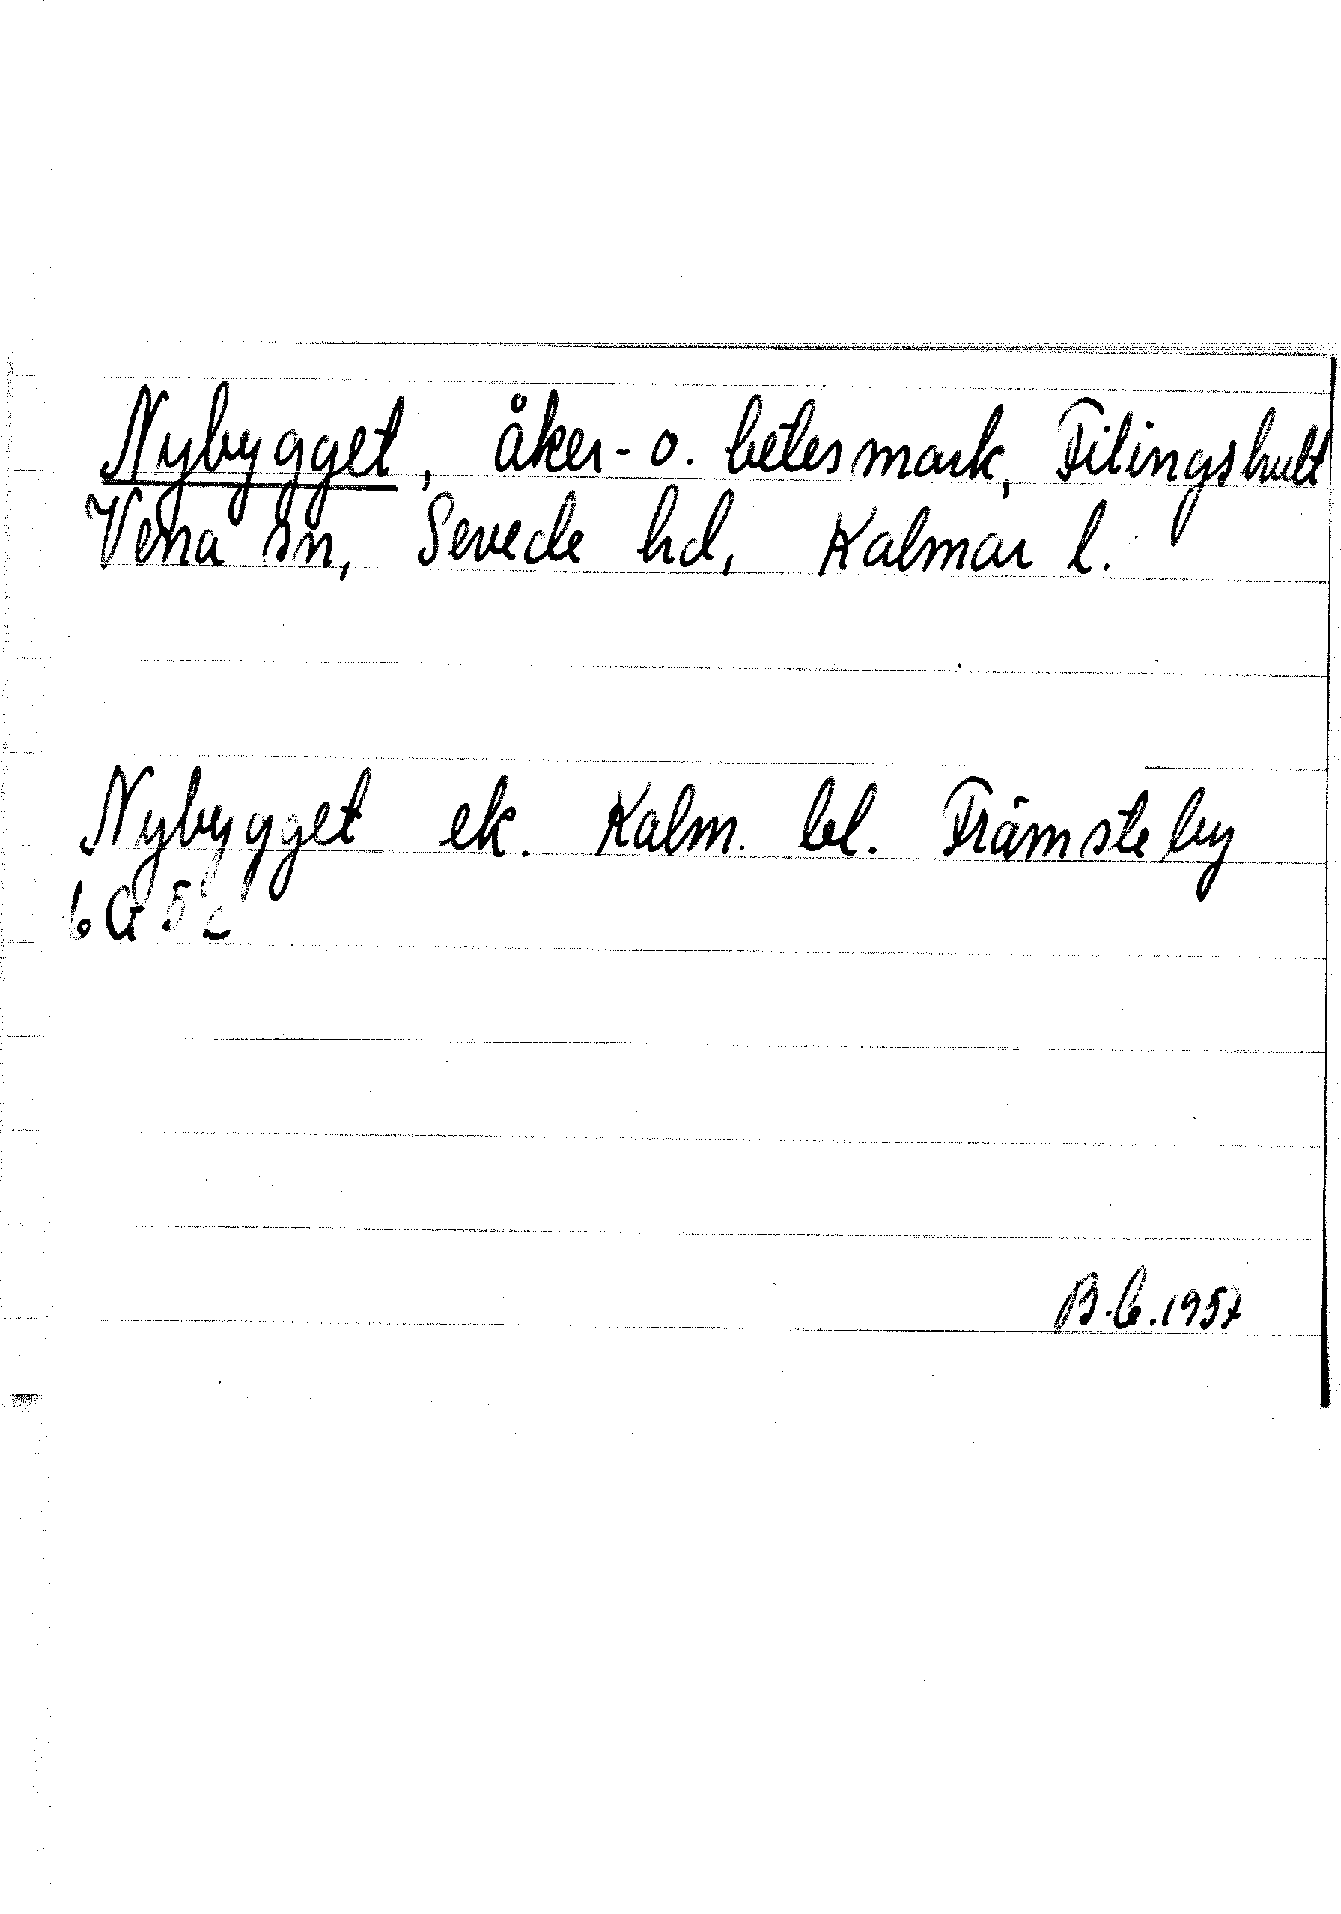 Nybygget, åker- o. betesmark, Filingshult
Vena sn, Sevede hd, Kalmar l.
Nybygget ek. Kalm. bl. Främsteby
6 G 5 c
B.C. 1957